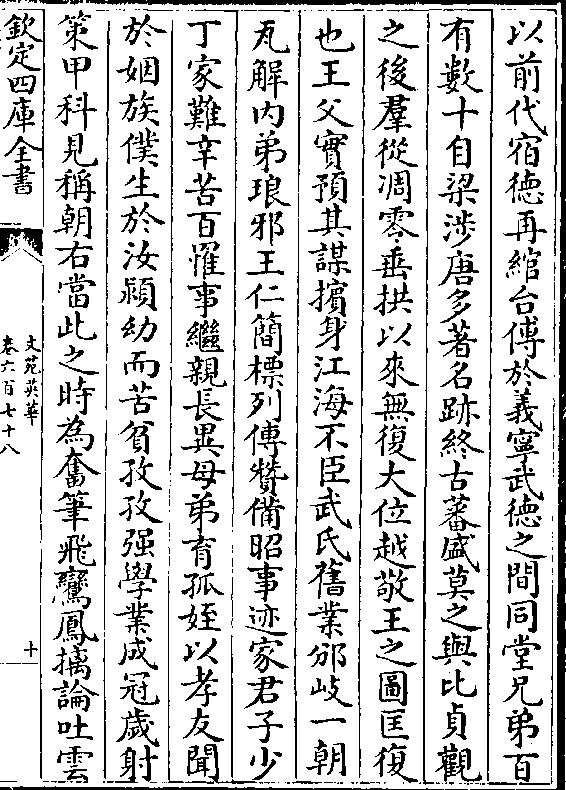 以前代宿德再綰台傅於義寧武德之間同堂兄弟百
有數十自梁涉唐多著名跡終古蕃盛莫之與比貞觀
之後羣從凋零垂拱以來無復大位越敬王之圖匡復
也王父實預其謀擯身江海不臣武氏舊業邠岐一朝
瓦解内弟琅邪王仁簡標列傅贊備昭事迹家君子少
丁家難辛苦百罹事繼親長異母弟育孤姪以孝友聞
於姻族僕生於汝潁幼而苦貧孜孜强學業成冠歲射
策甲科見稱朝右當此之時為奮筆飛鸞鳳摛論吐雲
欽定四庫全書
文苑英華
卷六百七十八
十